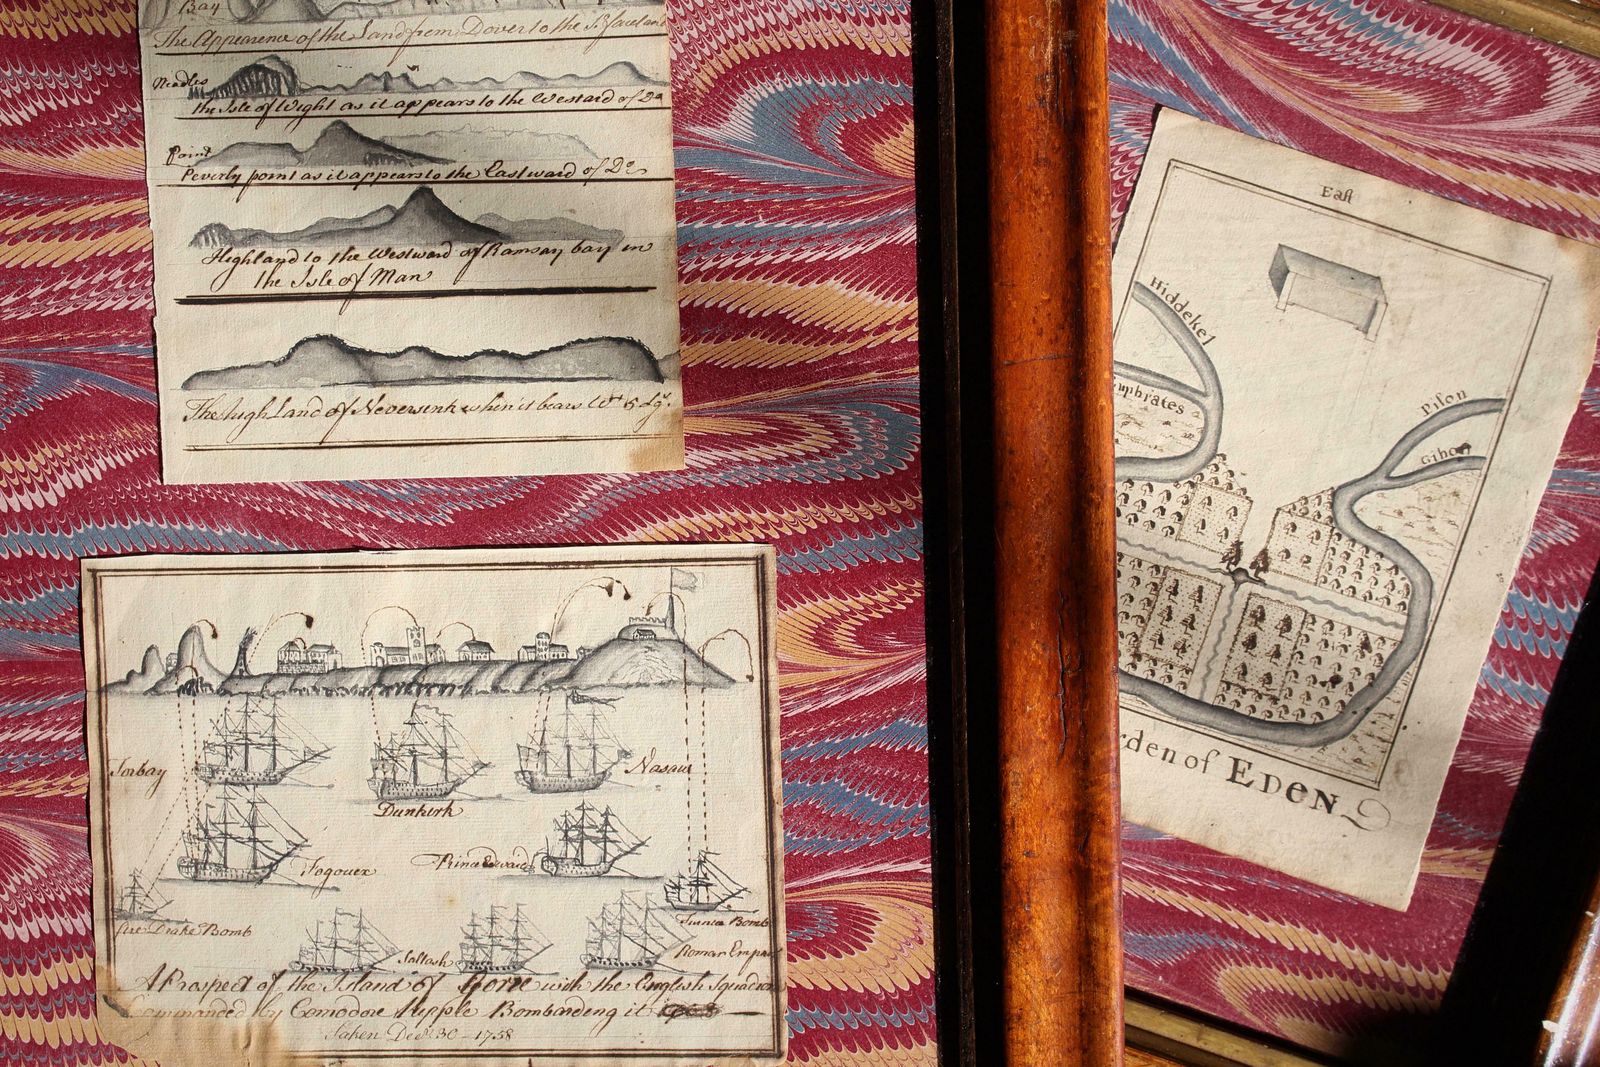 Bay
The Appearence of the Land from Dover to the
Needles
the Isle of Wight as it appears to the Westard of Do
Point
Peverly point as it appears to the Eastward of Do
Highland to the Westward of Ramsay bay in
the Isle of Man
The high Land of Neversink when it bears
Torbay
Nasau
Dunkirk
Fogouex
Prince Edward
Fire Drake Bomb
Furnea Bomb
Saltash
Roman Emper
A Prospect of the Island of Goree with the English Squadron
Commanded by Comodore Kipple Bombarding it
Taken Decr 30 - 1758
East
Hiddekel
uphrates
Pison
Gihon
rden of EDEN